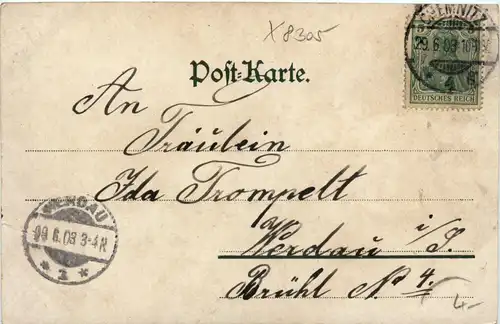 X8305
CHEMNITZ
29.6.03
* 1 *
DEUTSCHES REICH
Post-Karte.
An
Fräulein
Ida Trompelt
Werdau i/S.
Brühl No 4.
WERDAU
29.6.03 3-4N
* 1 *
4-